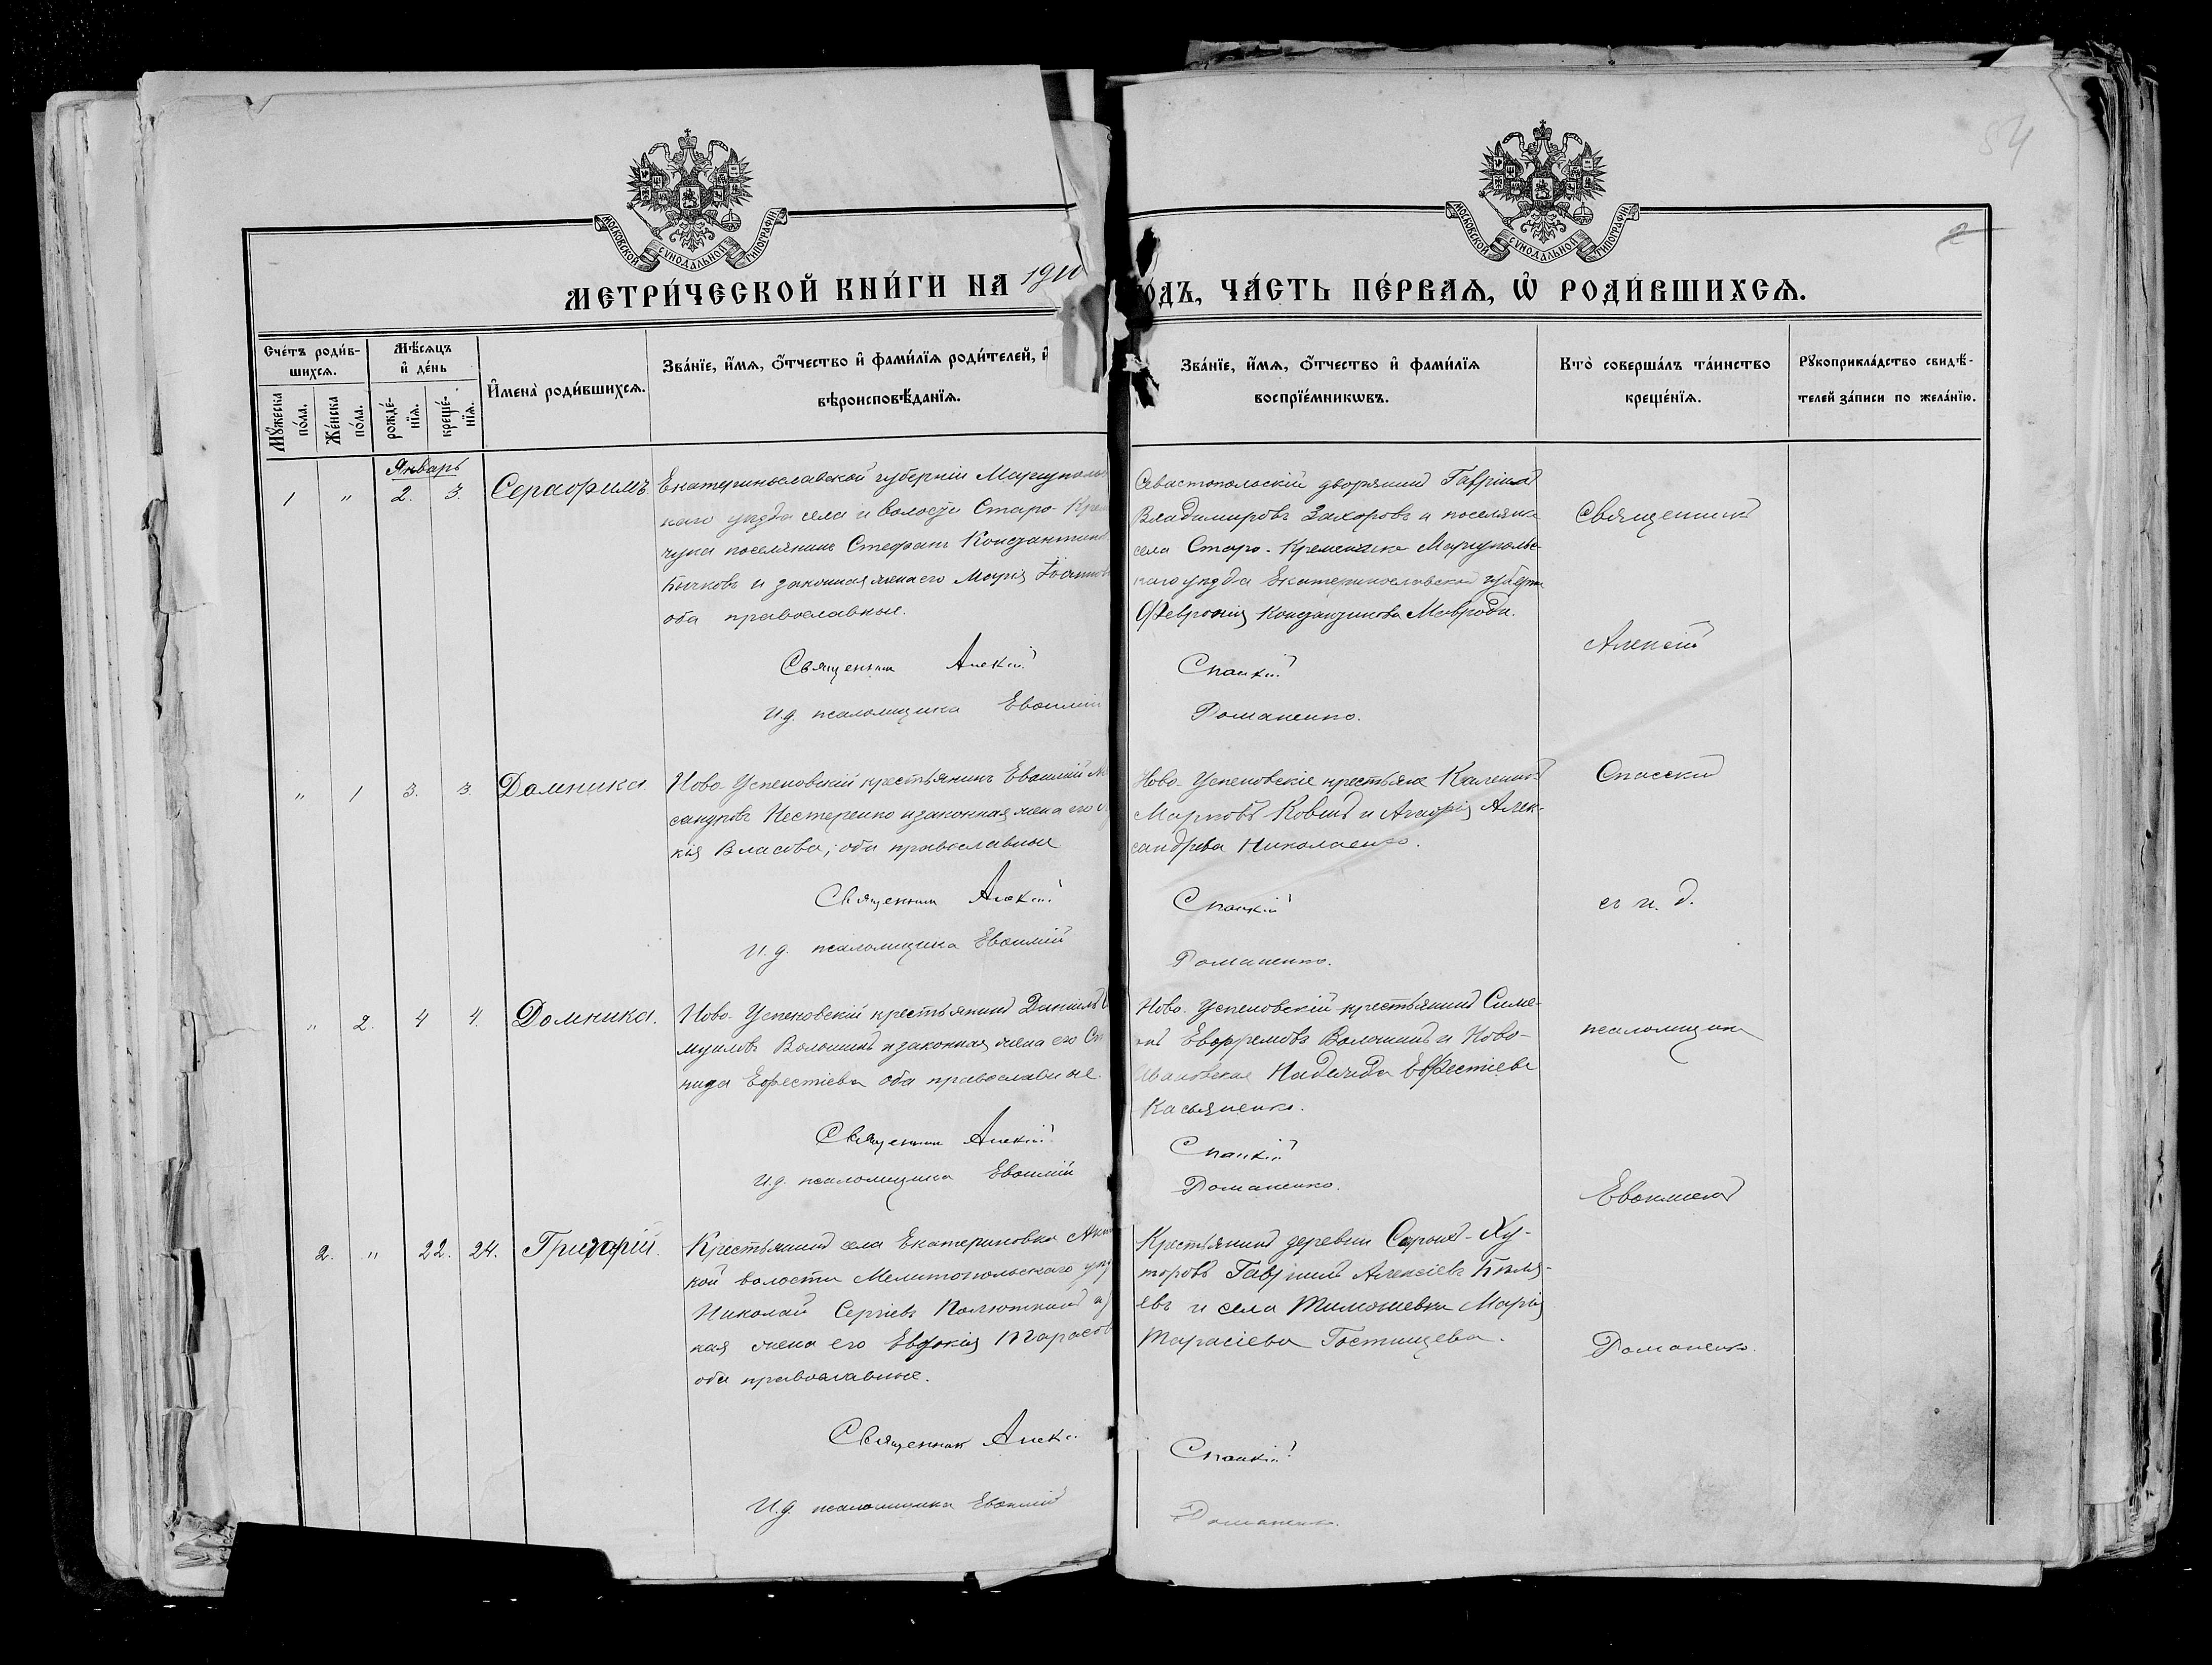 54
2
МОСКОВСКОЙ СѴНОДАЛЬНОЙ ТИПОГРАФІИ
МОСКОВСКОЙ СѴНОДАЛЬНОЙ ТИПОГРАФІИ
МЕТРИ́ЧЕСКОЙ КНИ́ГИ НА 1910
ОДЪ, ЧА́СТЬ ПЕ́РВАѦ, Ѡ҆ РОДИ́ВШИХСѦ.
Сче́тъ роди́в-
шихсѧ.
Мꙋ́жеска по́ла.
Же́нска по́ла.
Мѣ́сѧцъ
и҆ де́нь
рожде́-
нїѧ.
креще́-
нїѧ.
И҆мена̀ роди́вшихсѧ.
Зва́нїе, и҆́мѧ, ѻ҆́тчество и҆ фами́лїѧ роди́телей, и҆
вѣроисповѣ́данїѧ.
Зва́нїе, и҆́мѧ, ѻ҆́тчество и҆ фами́лїѧ
воспрїе́мникѡвъ.
Кто̀ соверша́лъ та́инство
креще́нїѧ.
Рꙋкоприкла́дство свидѣ́-
телей за́писи по жела́нїю.
Январь
1 " 2. 3. Серафимъ
Екатеринославской губерніи Мариуполь
каго уѣзда села и волости Старо-Крем
чука поселянинъ Стефанъ Константинов
Бычковъ и законная жена его Марія Іоаннов
оба православные.
Священник Алексій
И.д. псаломщика Евѳимій
Севастопольскій дворянинъ Гавріилъ
Владимировъ Захаровъ и поселянка
села Старо-Кременчика Мариупольс-
каго уѣзда Екатеринославской губерн
Феврония Константинова Мавроди.
Спасскій
Романенко.
" 1 3. 3. Домника
Ново-Успеновскій крестьянинъ Евѳимій
сандровъ Нестеренко и законная жена его
кія Власова; оба православные
Священник Алексій
И.д. псаломщика Евѳимій
Ново-Успеновскіе крестьяне
Марковъ Ковшъ и Агафія Алек-
сандрова Николаенко.
Спасскій
Романенко.
" 2. 4 4. Домника.
Ново-Успеновскій крестьянинъ Даніилъ
муиловъ Волошинъ и законная жена его
нида Ефестіева оба православные.
Священник Алексій
И.д. псаломщика Евѳимій
Ново-Успеновскій крестьянинъ Симе-
онъ Ефремовъ Волошинъ и Ново-
Ивановская Надежда Ефестіева
Касьяненко.
Спасскій
Романенко.
2. " 22. 24. Григорій.
Крестьянинъ села Екатериновки
кой волости Мелитопольскаго уѣз
Николай Сергіевъ
ная жена его Евдокія Тарасов
оба православные.
Священник Алекс
И.д. псаломщика Евѳимій
Крестьянинъ деревни Ху-
торовъ Гавріилъ Алексіевъ Бѣля-
евъ и села Тимошевки Марія
Тарасіева Гостищева.
Спасскій
Романенко.
Священникъ
Алексій
Спасскій
съ и. д.
псаломщика
Евѳиміемъ
Романенко.